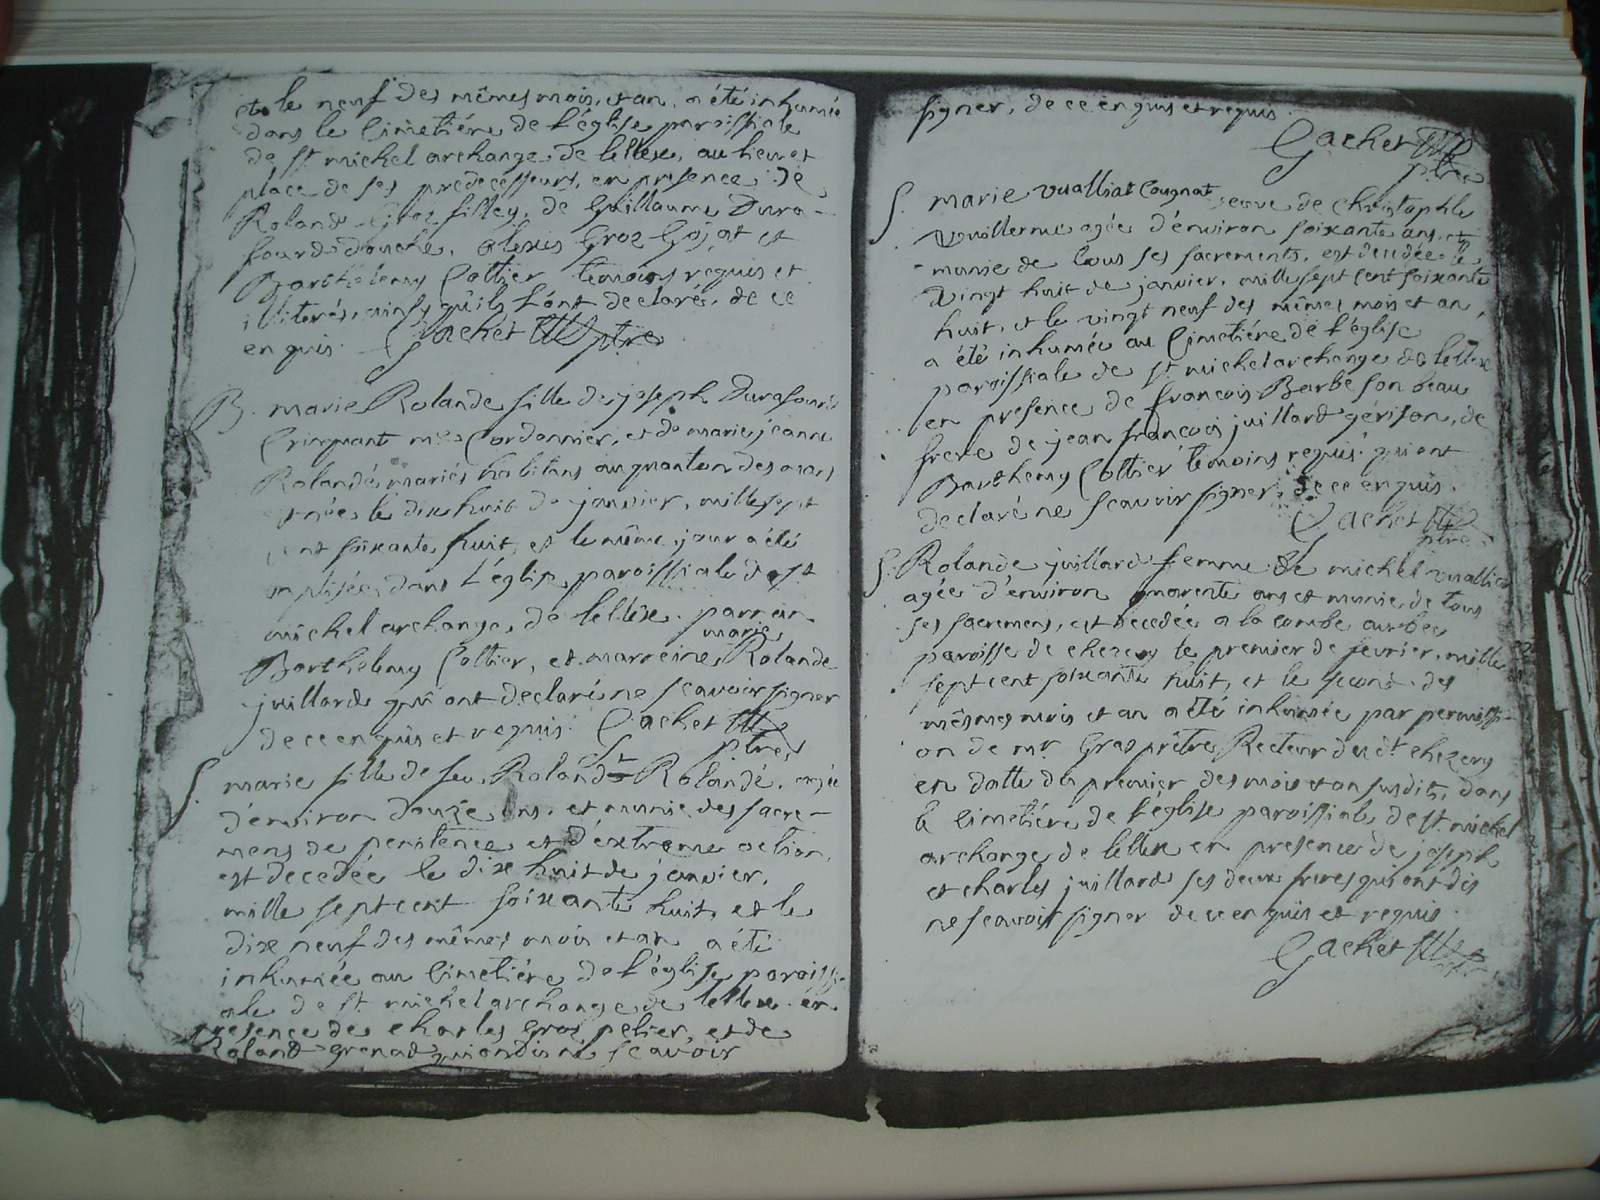 et le neuf des mêmes mois, et an, a été inhumée
dans le Cimetiére de l'église paroissiale
de st michel archange de lellex, au lieu et
place de ses predecesseurs, en presence de
Roland Gros filley, de Guillaume Dura-
fourd douché, alexis Gros Gojat et
Barthelemy Coltier temoins requis et
illiterés, ainsy qu'ils l'ont declaré, de ce
enquis. Gachet ptre
B. marie Rolande fille de joseph Durafourd
Crinquant me Cordonnier, et de marie jeanne
Rolandé mariés habitans au quanton des mars
est née le dix huit de janvier, mille sept
cent soixante huit, et le même jour a été
baptisée dans l'église paroissiale de st
michel archange de lellex. parrain
marie
Barthelemy Coltier, et marreine Rolande
juillard qui ont declaré ne scavoir signer
de ce enquis et requis. Gachet
ptre
S. marie fille de feu Roland Rolandé, agée
d'environ douze ans. et munie des sacre-
mens de penitence et d'extreme action,
est decedée le dix huit de janvier,
mille sept cent soixante huit, et le
dix neuf des mêmes mois et an a été
inhumée au Cimetiére de l'église paroissi-
ale de st michel archange de lellex en
presence de charles Gros pelier, et de
Roland grenad qui ont dis ne scavoir
signer, de ce enquis et requis.
Gachet
ptre
S. marie vualliat Cougnat veuve de christophle
Vuillerme agée d'environ soixante ans, et
munie de tous ses sacrements, est decedée le
vingt huit de janvier, mille sept cent soixante
huit, et le vingt neuf des mêmes mois et an,
a été inhumée au Cimetiére de l'église
paroissiale de st michel archange de lellex
en presence de francois Barbe son beau
frere de jean francois juillard gérison, de
Barthemy Coltier temoins requis qui ont
declaré ne scavoir signer, de ce enquis.
Gachet
ptre
S. Rolande juillard femme de michel vualliat
agée d'environ quarente ans et munie de tous
ses sacremens, est decedée a la combe
paroisse de chezery le premier de fevrier, mille
sept cent soixante huit, et le second des
mêmes mois et an a été inhumée par permissi-
on de mr Gros prêtre Recteur dudt chezery
en datte du premier des mois et an susdits, dans
le cimetiére de l'église paroissiale de st michel
archange de lellex en presence de joseph
et charles juillard ses deux freres qui ont dis
ne scavoir signer de ce enquis et requis.
Gachet